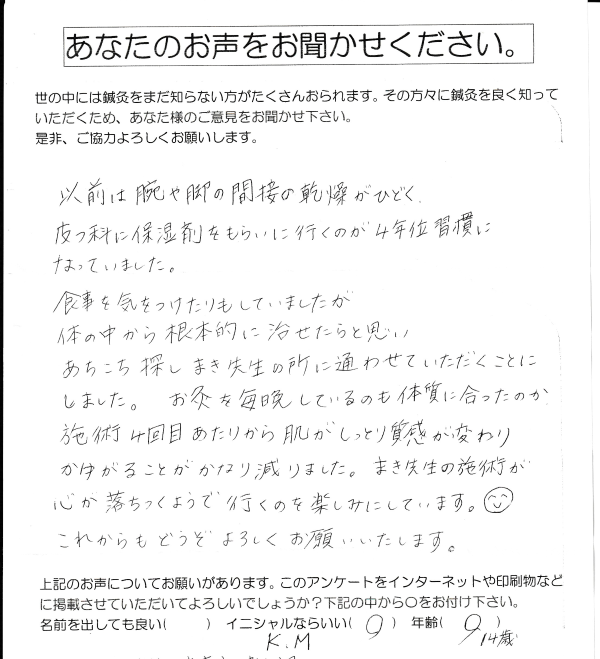 あなたのお声をお聞かせください。
世の中には鍼灸をまだ知らない方がたくさんおられます。その方々に鍼灸を良く知って
いただくため、あなた様のご意見をお聞かせ下さい。
是非、ご協力よろしくお願いします。
以前は腕や脚の間接の乾燥がひどく、
皮フ科に保湿剤をもらいに行くのが4年位習慣に
なっていました。
食事を気をつけたりもしていましたが
体の中から根本的に治せたらと思い
あちこち探しまき先生の所に通わせていただくことに
しました。 お灸を毎晩しているのも体質に合ったのか
施術4回目あたりから肌がしっとり質感が変わり
かゆがることがかなり減りました。まき先生の施術が
心が落ちつくようで行くのを楽しみにしています。
これからもどうぞよろしくお願いいたします。
上記のお声についてお願いがあります。このアンケートをインターネットや印刷物など
に掲載させていただいてよろしいでしょうか?下記の中から○をお付け下さい。
名前を出しても良い( ) イニシャルならいい(○) 年齢(○)
K.M 14歳